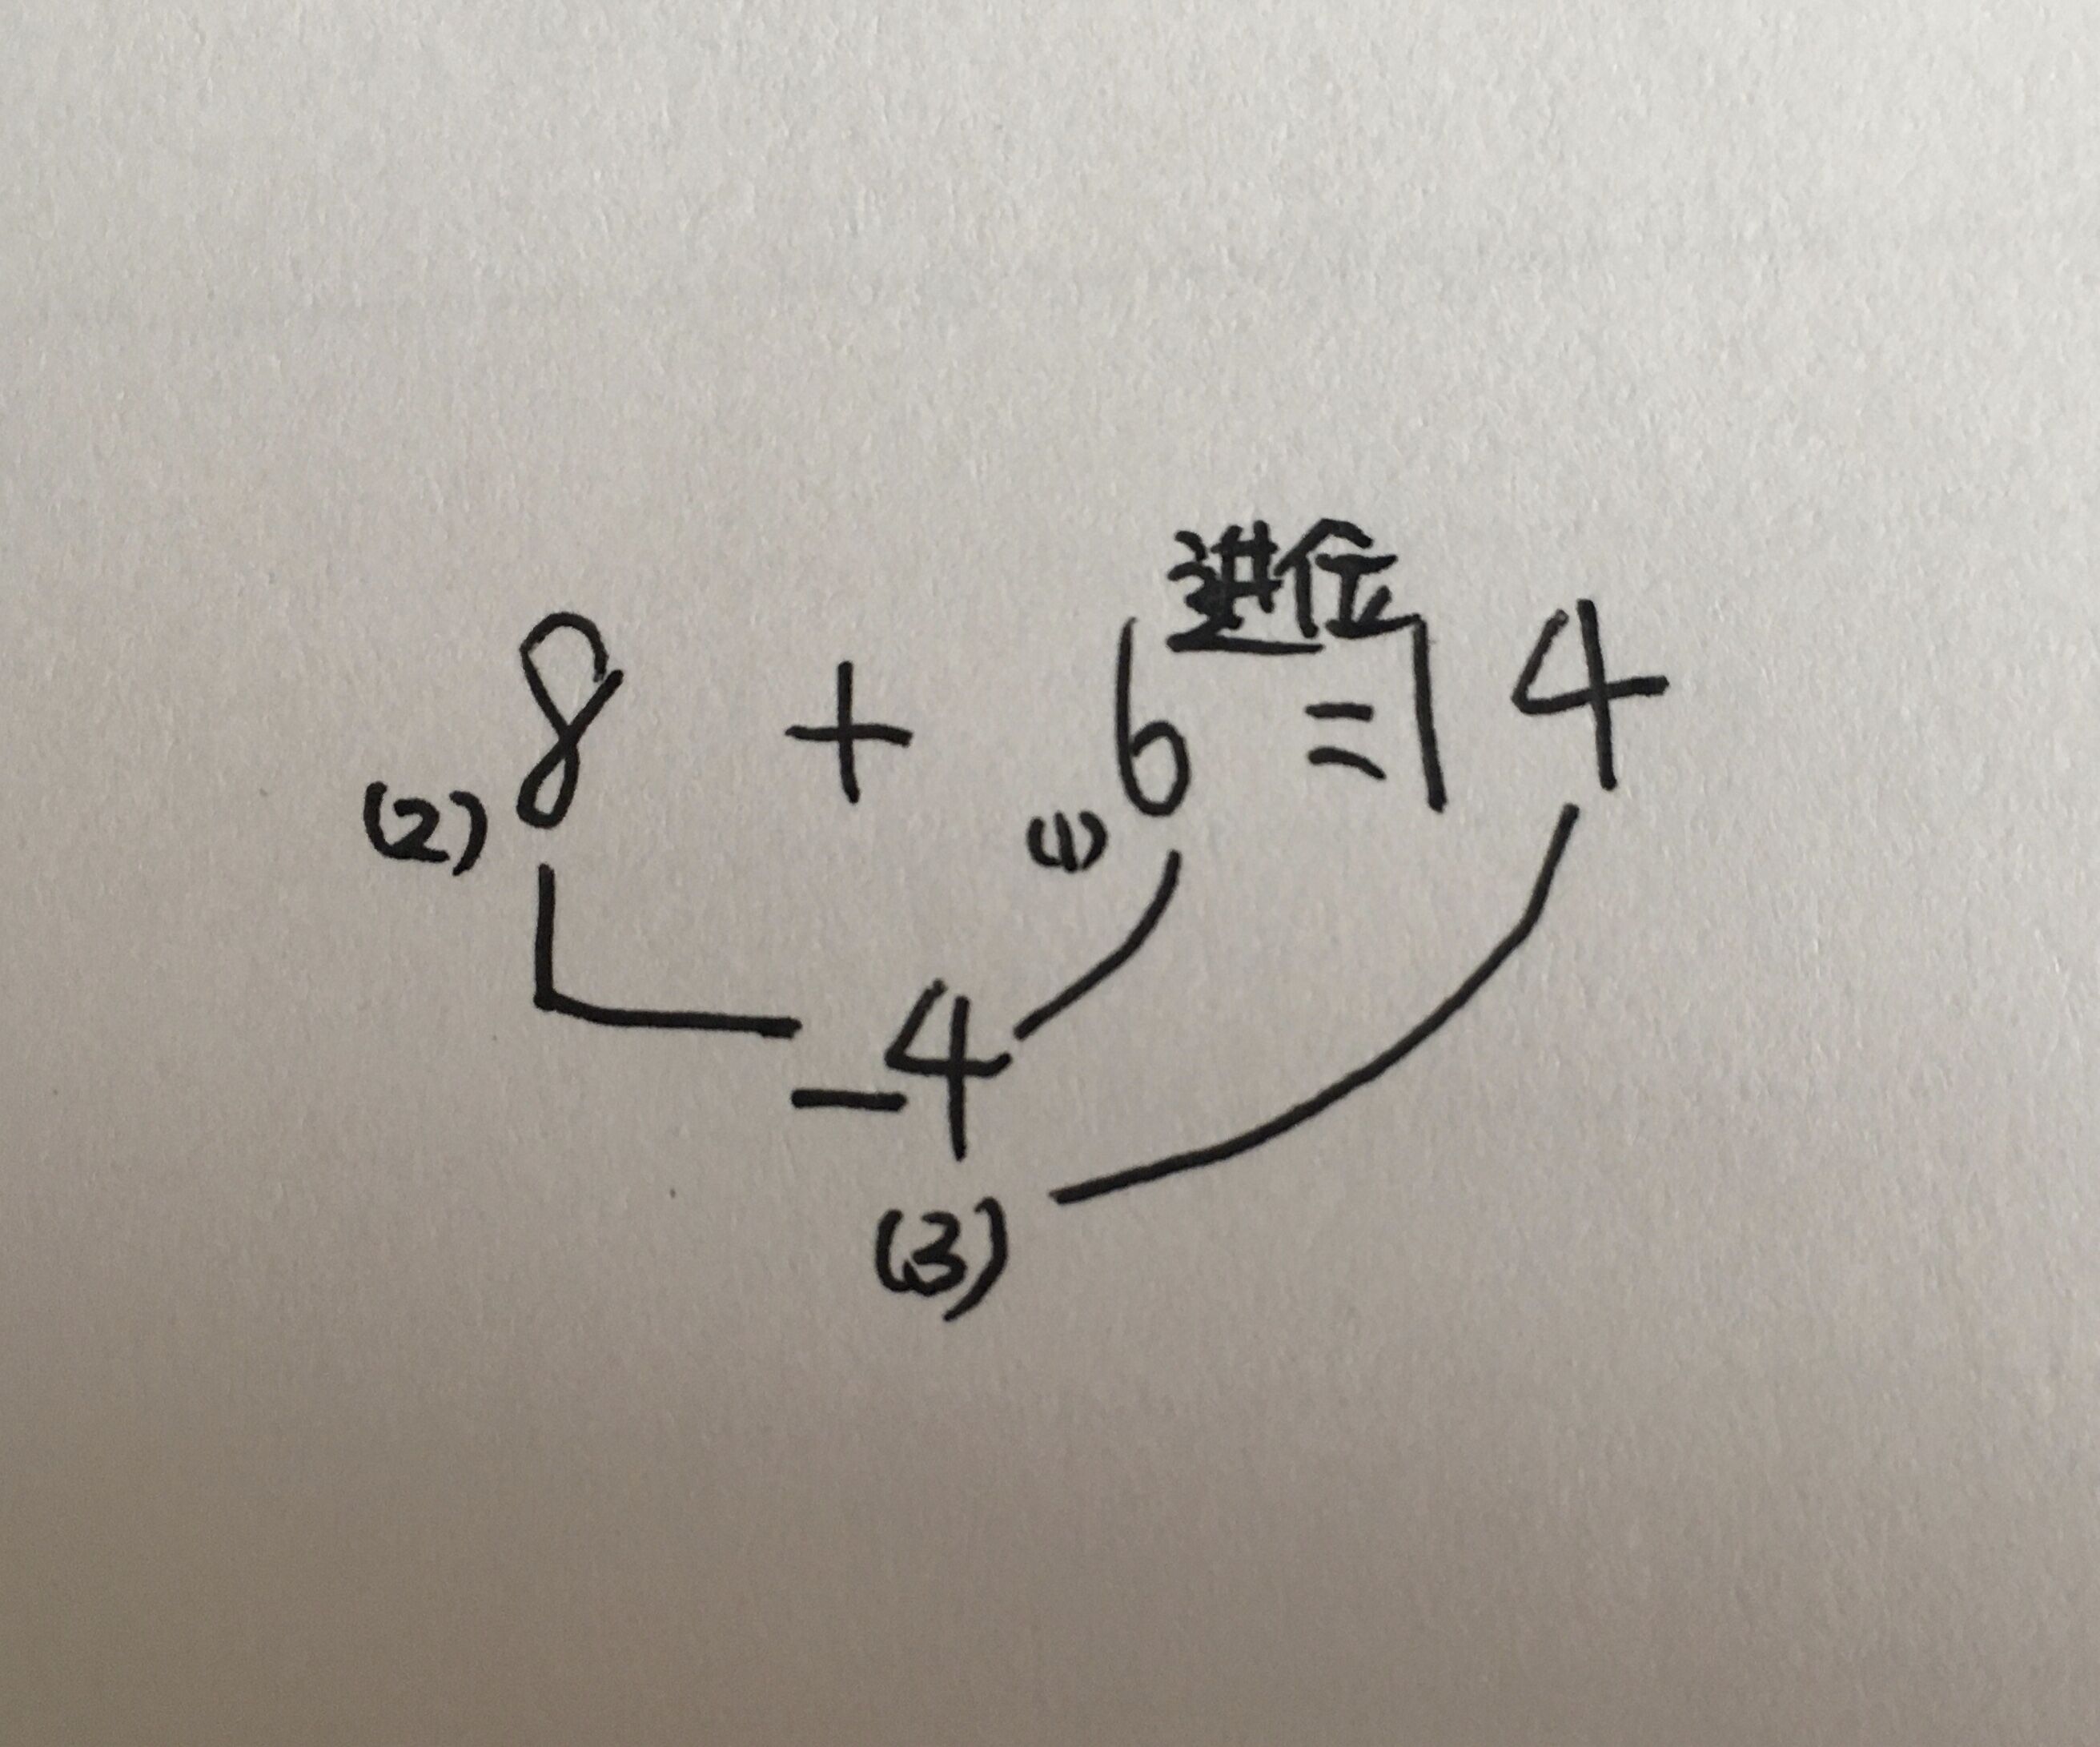 进位
8 + 6 = 14
(2) (1)
-4
(3)